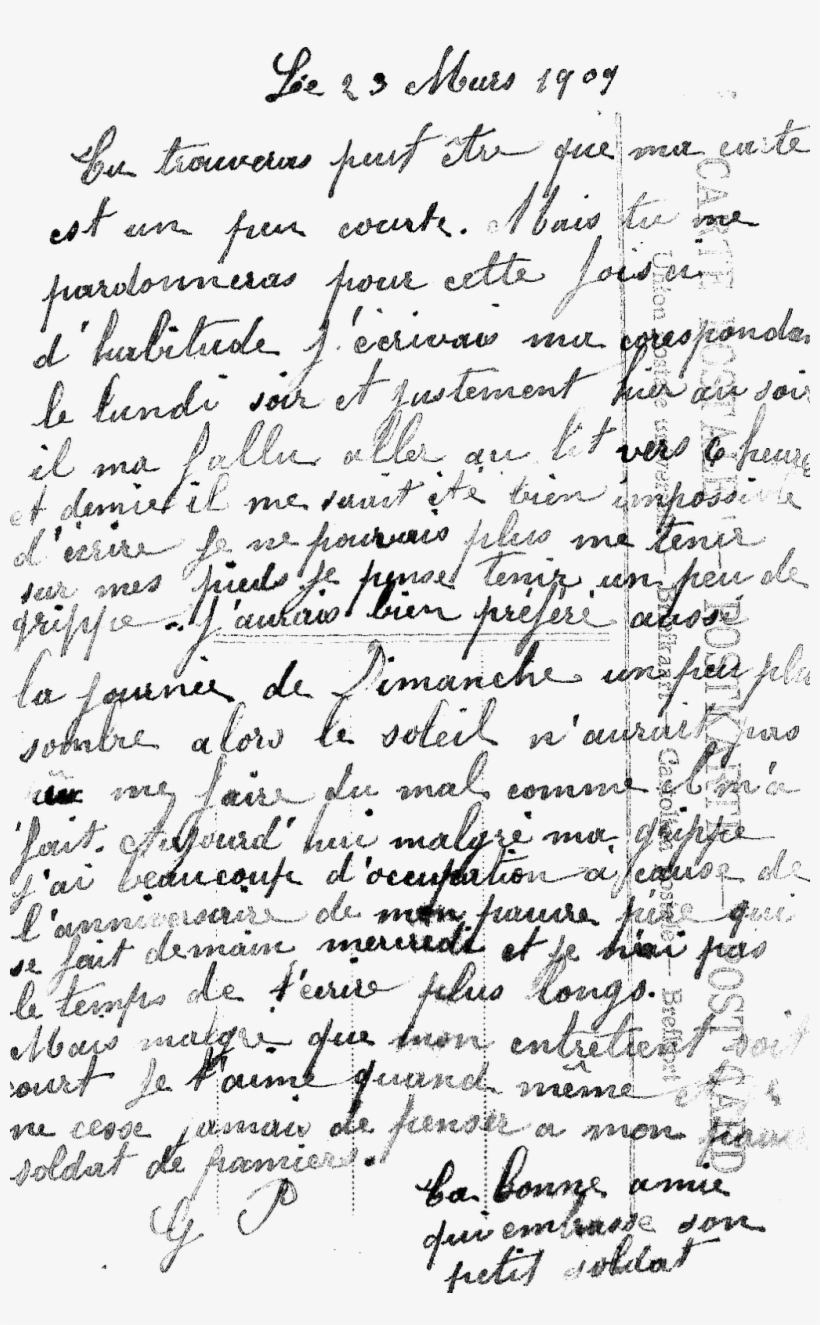 Le 23 Mars 1909
Tu trouveras peut être que ma carte
est un peu courte. Mais tu me
pardonneras pour cette fois ci
d'habitude j'écrivais ma corespondan
le lundi soir et justement hier au soir
il ma fallu aller au lit vers 6 heures
et demie il me serait été bien impossible
d'écrire je ne pouvais plus me tenir
sur mes pieds je pense tenir un peu de
grippe. J'aurais bien préféré aussi
la journée de Dimanche un peu plu
sombre alors le soleil n'aurait pas
me faire du mal comme il m'a
fait. Aujourd'hui malgré ma grippe
j'ai beaucoup d'occupation à cause de
l'anniversaire de mon pauvre père qui
se fait demain mercredi et je n'ai pas
le temps de t'écrire plus longs.
Mais malgré que mon entretient soit
court je t'aime quand même et
ne cesse jamais de penser a mon pauvre
soldat de pamiers.
G P
Ta bonne amie
qui embrasse son
petit soldat
CARTE POSTALE — POSTKARTE — POST CARD
Union postale universelle — Briefkaart — Cartolina postale — Brefkort